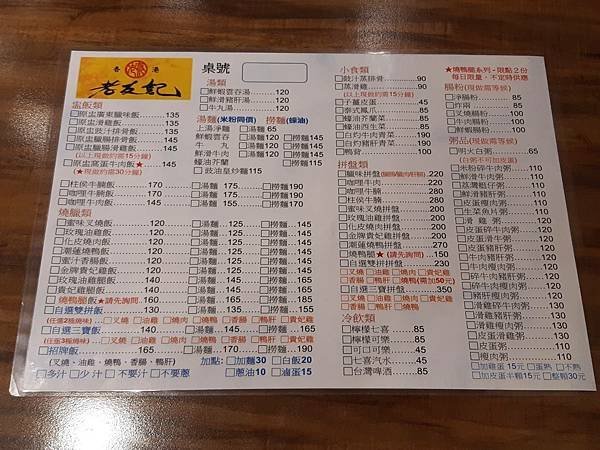 香港
老友記
桌號
盅飯類
□原盅廣東臘味飯 135
□原盅滑雞飯 135
□原盅豉汁排骨飯 135
□原盅臘腸排骨飯 145
□原盅臘腸滑雞飯 145
(以上現做約需15分鐘)
□原盅窩蛋牛肉飯★ 145
(★現做約需30分鐘)
湯類
□鮮蝦雲吞湯 120
□鮮滑豬肝湯 120
□牛丸湯 120
湯麵(米粉同價) 撈麵(蠔油)
上湯淨麵 □湯麵 65
鮮蝦雲吞 □湯麵 120 □撈麵145
牛 丸 □湯麵 120 □撈麵145
鮮滑牛肉 □湯麵 120 □撈麵145
蠔油芥蘭 □撈麵145
□豉油皇炒麵115
□柱侯牛腩飯 170 □湯麵 175 □撈麵190
□咖哩牛腩飯 170 □湯麵 175 □撈麵190
□咖哩牛肉飯 145 □湯麵 155 □撈麵170
燒臘類
□蜜味叉燒飯 120 □湯麵 125 □撈麵145
□玫瑰油雞飯 120 □湯麵 125 □撈麵145
□化皮燒肉飯 120 □湯麵 125 □撈麵145
□潮蓮燒鴨飯 120 □湯麵 125 □撈麵145
□蜜汁香腸飯 120 □湯麵 125 □撈麵145
□金牌貴妃雞飯 120 □湯麵 125 □撈麵145
□玫瑰油雞腿飯 140 □湯麵 145 □撈麵165
□貴妃雞腿飯 140 □湯麵 145 □撈麵165
□燒鴨腿飯★請先詢問.160 □湯麵 165 □撈麵185
□自選雙拼飯 130 □湯麵 135 □撈麵155
(任選2種燒味) □叉燒 □油雞 □燒肉 □燒鴨 □香腸 □鴨肝 □貴妃雞
□自選三寶飯 140 □湯麵 145 □撈麵165
(任選3種燒味) □叉燒 □油雞 □燒肉 □燒鴨 □香腸 □鴨肝 □貴妃雞
□招牌飯 165 □湯麵 170 □撈麵 190
(叉燒、油雞、燒鴨、香腸、鴨肝) 加點: □加麵30 □白飯20
□多汁 □少汁 □不要汁 □不要蔥 □蔥油10 □滷蛋15
小食類
□豉汁蒸排骨 90
□蒸滑雞 90
(以上現做約需15分鐘)
□子薑皮蛋 45
□泰式鳳爪 85
□蠔油芥蘭菜 85
□蠔油西生菜 85
□灼牛肉青菜 190
□白灼豬肝青菜 190
□鴨腎 100
拼盤類
□臘味拼盤 .220
□咖哩牛肉 220
□咖哩牛腩 200
□柱侯牛腩 200
□蜜味叉燒拼盤 200
□玫瑰油雞拼盤 200
□化皮燒肉拼盤 200
□金牌貴妃雞拼盤 200
□潮蓮燒鴨拼盤 270
□燒鴨腿★(請先詢問) .150
□自選雙拼拼盤 230
□叉燒 □油雞 □燒肉 □貴妃雞
□香腸 □鴨肝 □燒鴨(需加50元)
□自選三寶拼盤 350
□叉燒 □油雞 □燒肉 □貴妃雞
□香腸 □鴨肝 □燒鴨
冷飲類
□檸檬七喜 85
□檸檬可樂 85
□可口可樂 45
□七喜汽水 45
□台灣啤酒 85
★燒鴨腿系列-限點2份
每日限量,不定時供應
腸粉(現做需等候)
□淨腸粉 85
□炸腸 85
□叉燒腸粉 100
□牛肉腸粉 100
□鮮蝦腸粉 100
粥品(現做需等候)
□明火白粥 65
(白粥不可加皮蛋)
□米粉碎牛肉粥 110
□鮮滑牛肉粥 110
□荔灣艇仔粥 110
□鮮滑豬肝粥 110
□皮蛋瘦肉粥 110
□生菜魚片粥 110
□滑雞粥 110
□皮蛋碎牛肉粥 110
□皮蛋滑牛粥 110
□皮蛋豬肝粥 110
□牛肉瘦肉粥 110
□牛肉滑雞粥 110
□牛肉豬肝粥 110
□豬肝瘦肉粥 110
□滑雞碎牛肉粥 130
□滑雞豬肝粥 130
□滑雞瘦肉粥 130
□皮蛋滑雞粥 130
□皮蛋粥 110
□瘦肉粥 110
□加雞蛋15元 □蛋熟 □不熟
□加皮蛋半顆15元 □整顆30元